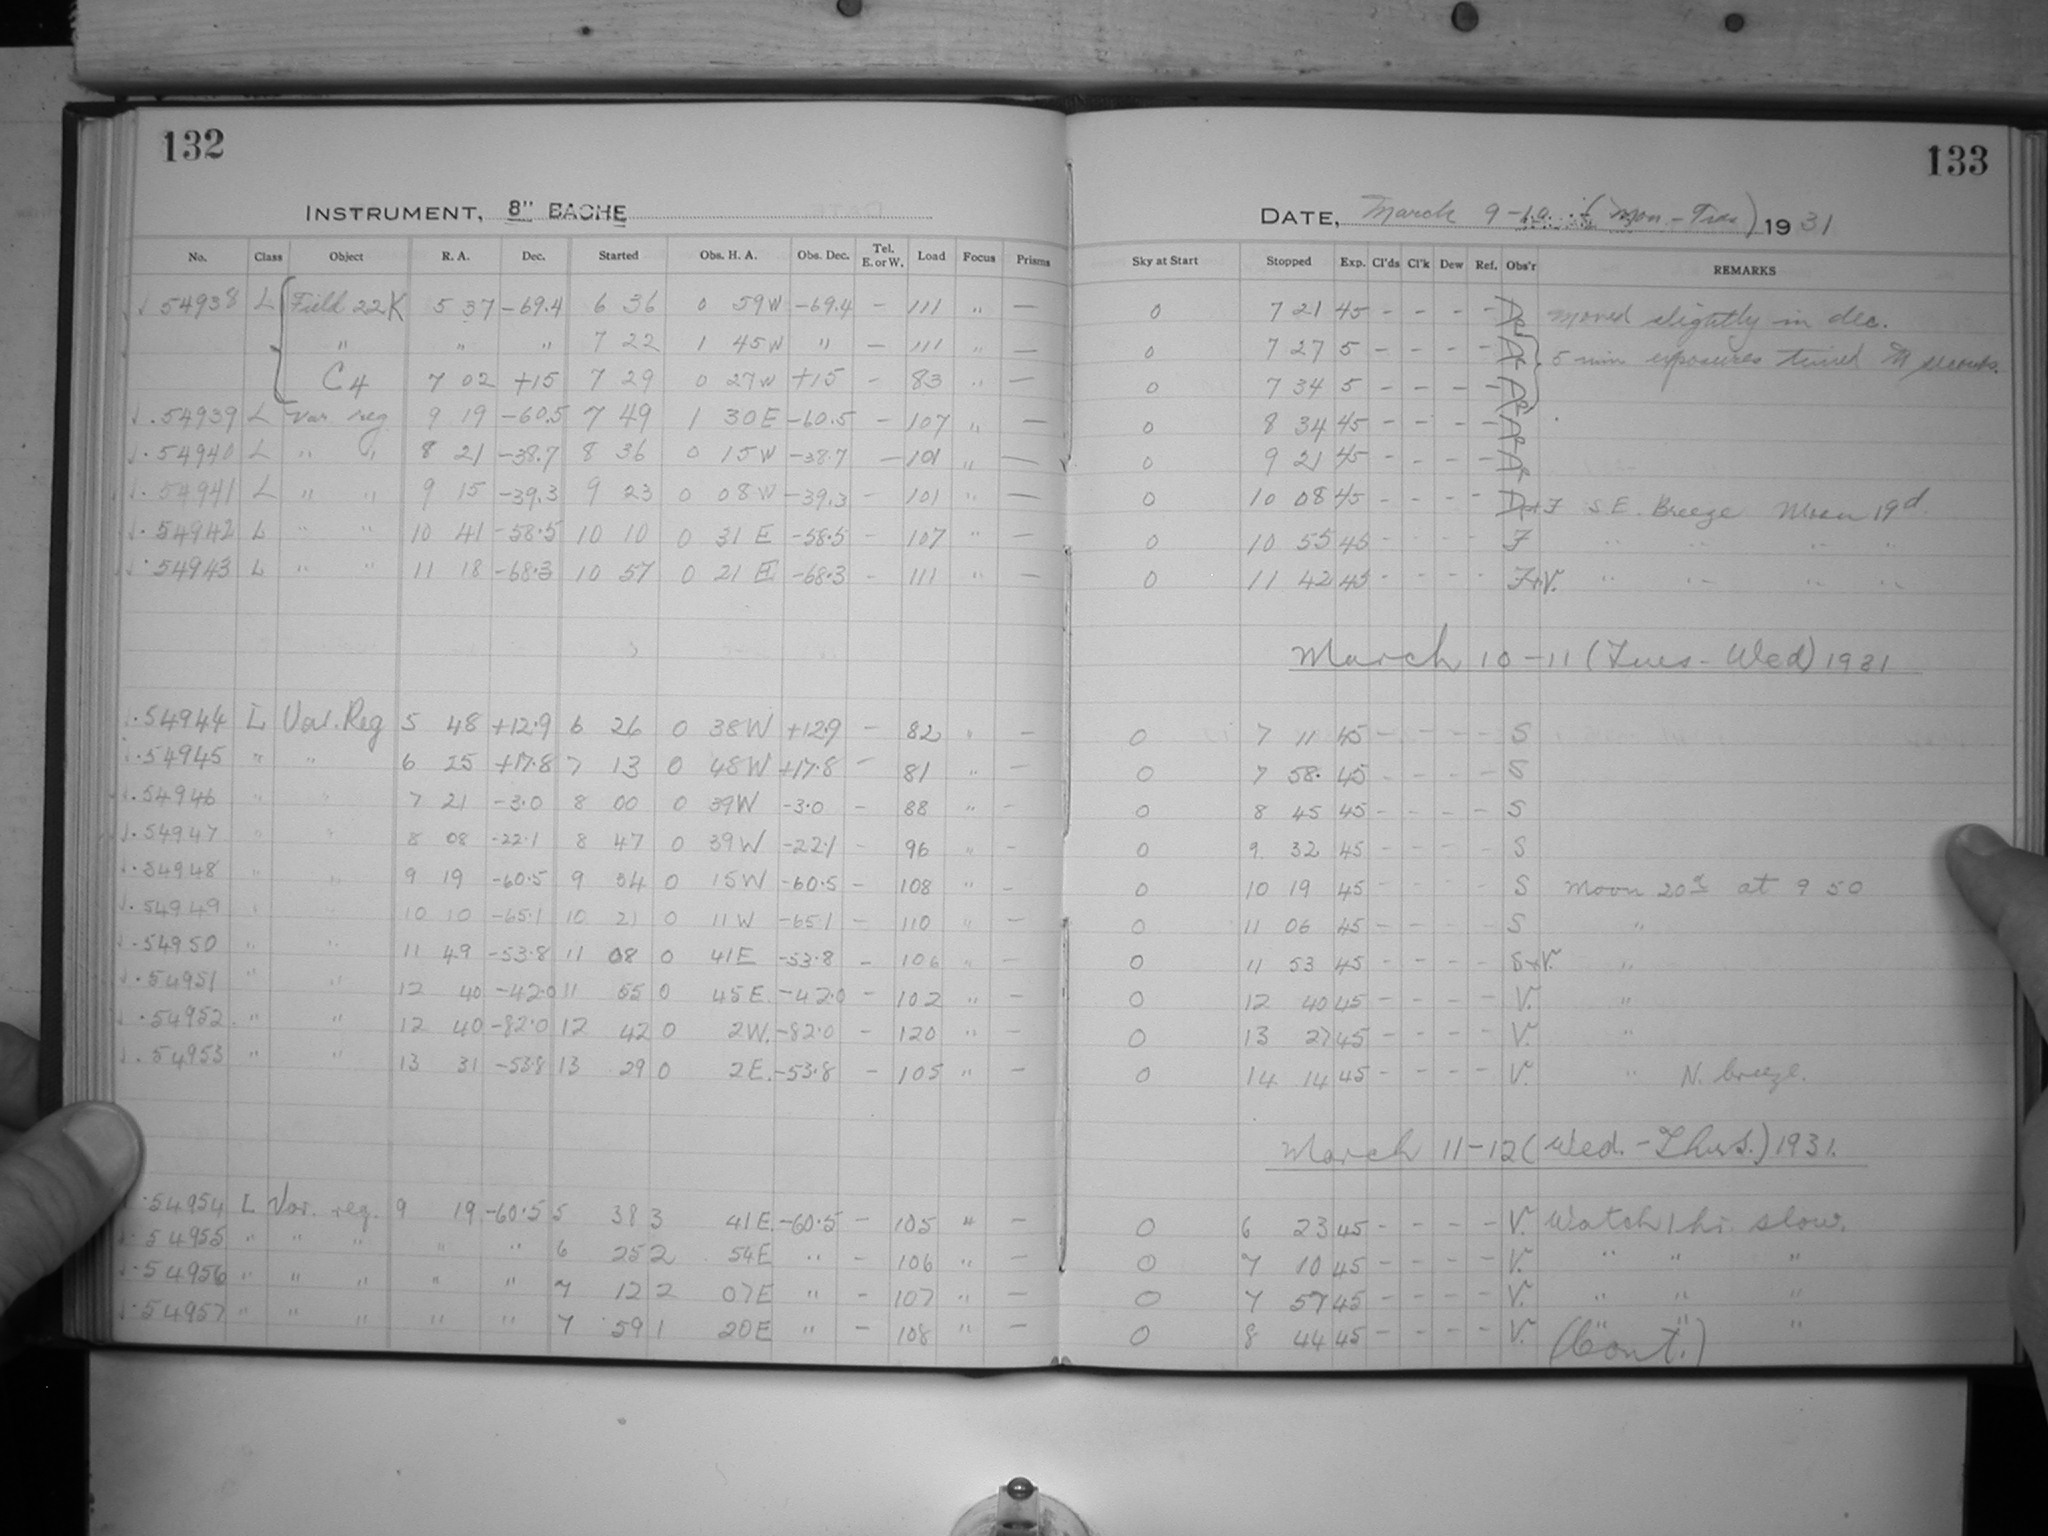 132
INSTRUMENT, 8" BACHE
No. Class Object R. A. Dec. Started Obs. H. A. Obs. Dec. Tel. E. or W. Load Focus Prisms
54938 L Field 22K 5 37 -69.4 6 36 0 59W -69.4 - 111 " -
" " " 7 22 1 45W " - 111 " -
C4 7 02 +15 7 29 0 27W +15 - 83 " -
.54939 L Var reg 9 19 -60.5 7 49 1 30E -60.5 - 107 " -
.54940 L " " 8 21 -38.7 8 36 0 15W -38.7 - 101 " -
.54941 L " " 9 15 -39.3 9 23 0 08W -39.3 - 101 " -
.54942 L " " 10 41 -58.5 10 10 0 31 E -58.5 - 107 " -
.54943 L " " 11 18 -68.3 10 57 0 21 E -68.3 - 111 " -
.54944 L Var. Reg 5 48 +12.9 6 26 0 38W +12.9 - 82 " -
.54945 " " 6 25 +17.8 7 13 0 48W +17.8 - 81 " -
.54946 " " 7 21 -3.0 8 00 0 39W -3.0 - 88 " -
.54947 " " 8 08 -22.1 8 47 0 39W -22.1 - 96 " -
.54948 " " 9 19 -60.5 9 34 0 15W -60.5 - 108 " -
.54949 " " 10 10 -65.1 10 21 0 11W -65.1 - 110 " -
.54950 " " 11 49 -53.8 11 08 0 41E -53.8 - 106 " -
.54951 " " 12 40 -42.0 11 55 0 45E. -42.0 - 102 " -
.54952. " " 12 40 -82.0 12 42 0 2W. -82.0 - 120 " -
.54953 " " 13 31 -53.8 13 29 0 2E. -53.8 - 105 " -
.54954 L Var. reg. 9 19. -60.5 5 38 3 41E. -60.5 - 105 " -
.54955 " " " " " 6 25 2 54E " - 106 " -
.54956 " " " " " 7 12 2 07E " - 107 " -
.54957 " " " " " 7 59 1 20E " - 108 " -
133
DATE, March 9-10 (Mon-Tues) 1931
Sky at Start Stopped Exp. Cl'ds Cl'k Dew Ref. Obs'r REMARKS
0 7 21 45 - - - - moved slightly in dec.
0 7 27 5 - - - - 5 min exposures timed seconds.
0 7 34 5 - - - -
0 8 34 45 - - - -
0 9 21 45 - - - -
0 10 08 45 - - - - S.E. Breeze Moon 19d.
0 10 55 45 - - - - F " " " "
0 11 42 45 - - - - F+V. " " " "
March 10-11 (Tues-Wed) 1931
0 7 11 45 - - - - S
0 7 58. 45 - - - - S
0 8 45 45 - - - - S
0 9. 32 45 - - - - S
0 10 19 45 - - - - S Moon 20d at 9 50
0 11 06 45 - - - - S "
0 11 53 45 - - - - S+V. "
0 12 40 45 - - - - V. "
0 13 27 45 - - - - V. "
0 14 14 45 - - - - V. " N. breeze.
March 11-12 (Wed.-Thurs.) 1931.
0 6 23 45 - - - - V. Watch 1 hr. slow.
0 7 10 45 - - - - V. " " "
0 7 57 45 - - - - V. " " "
0 8 44 45 - - - - V. " " "
(Cont.)